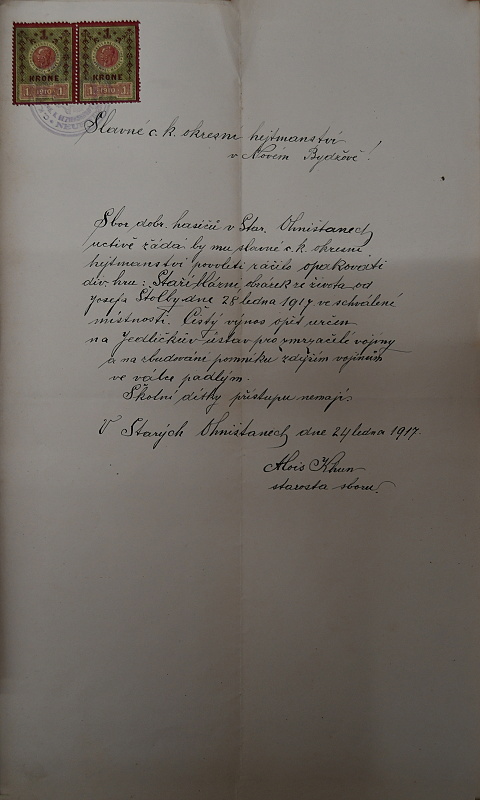 1 1
KRONE KRONE
1 1910 1 1 1910 1
Slavné c. k. okresní hejtmanství
v Novém Bydžově!
Sbor dobr. hasičů v Star. Ohništanech
uctivě žádá by mu slavné c. k. okresní
hejtmanství povoliti ráčilo opakovati
div. hru: Staří blázni, obrázek ze života od
Josefa Štolby dne 28 ledna 1917 ve schválené
místnosti. Čistý výnos opět určen
na Jedličkův ústav pro zmrzačilé vojíny
a na zbudování pomníku zdejším vojínům
ve válce padlým.
Školní dítky přístupu nemají.
V Starých Ohništanech, dne 24 ledna 1917.
Alois Khun
starosta sboru.